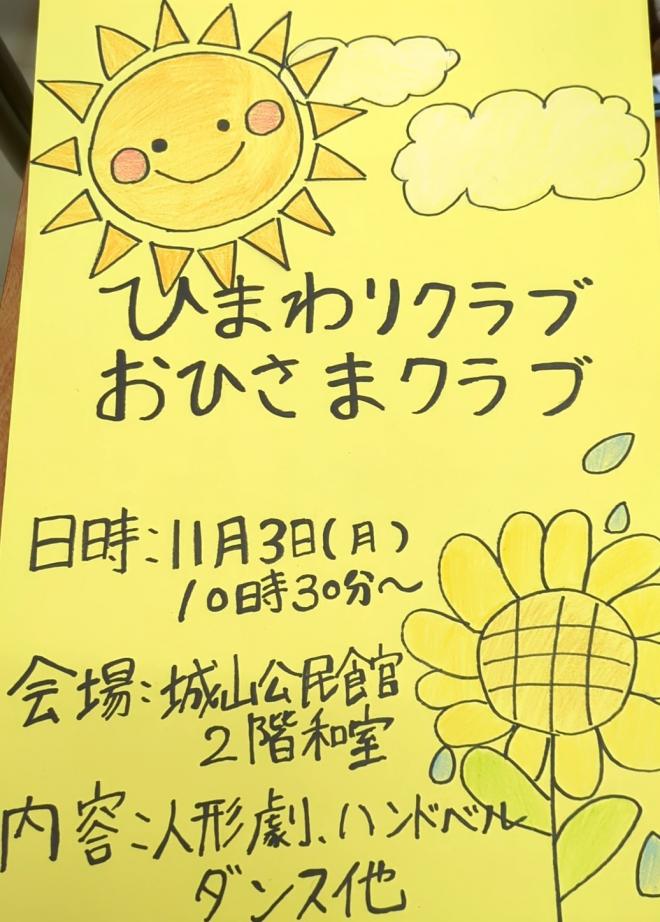 ひまわりクラブ
おひさまクラブ
日時:11月3日(月)
10時30分〜
会場:城山公民館
2階和室
内容:人形劇、ハンドベル
ダンス他